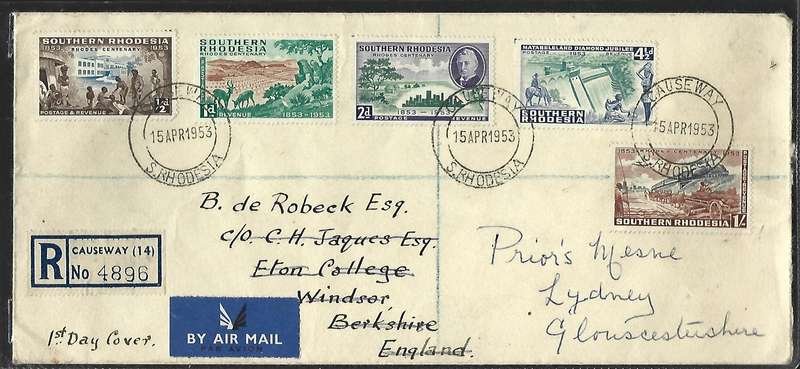 SOUTHERN RHODESIA
RHODES CENTENARY
1853 1953
½d
POSTAGE & REVENUE
SOUTHERN
RHODESIA
RHODES CENTENARY
1d
REVENUE 1853-1953
SOUTHERN RHODESIA
RHODES CENTENARY
2d
1853 - 1953
POSTAGE REVENUE
MATABELELAND DIAMOND JUBILEE
POSTAGE 1953 REVENUE
4½d
SOUTHERN
RHODESIA
CAUSEWAY
15 APR 1953
S. RHODESIA
CAUSEWAY
15 APR 1953
S. RHODESIA
CAUSEWAY
15 APR 1953
S. RHODESIA
1853 RHODES CENTENARY 1953
SOUTHERN RHODESIA 1/-
B. de Robeck Esq.
c/o C. H. Jaques Esq.
Eton College
Windsor
Berkshire
England.
Prior's Mesne
Lydney
Gloucestershire
R CAUSEWAY (14)
No 4896
1st Day Cover.
BY AIR MAIL
PAR AVION